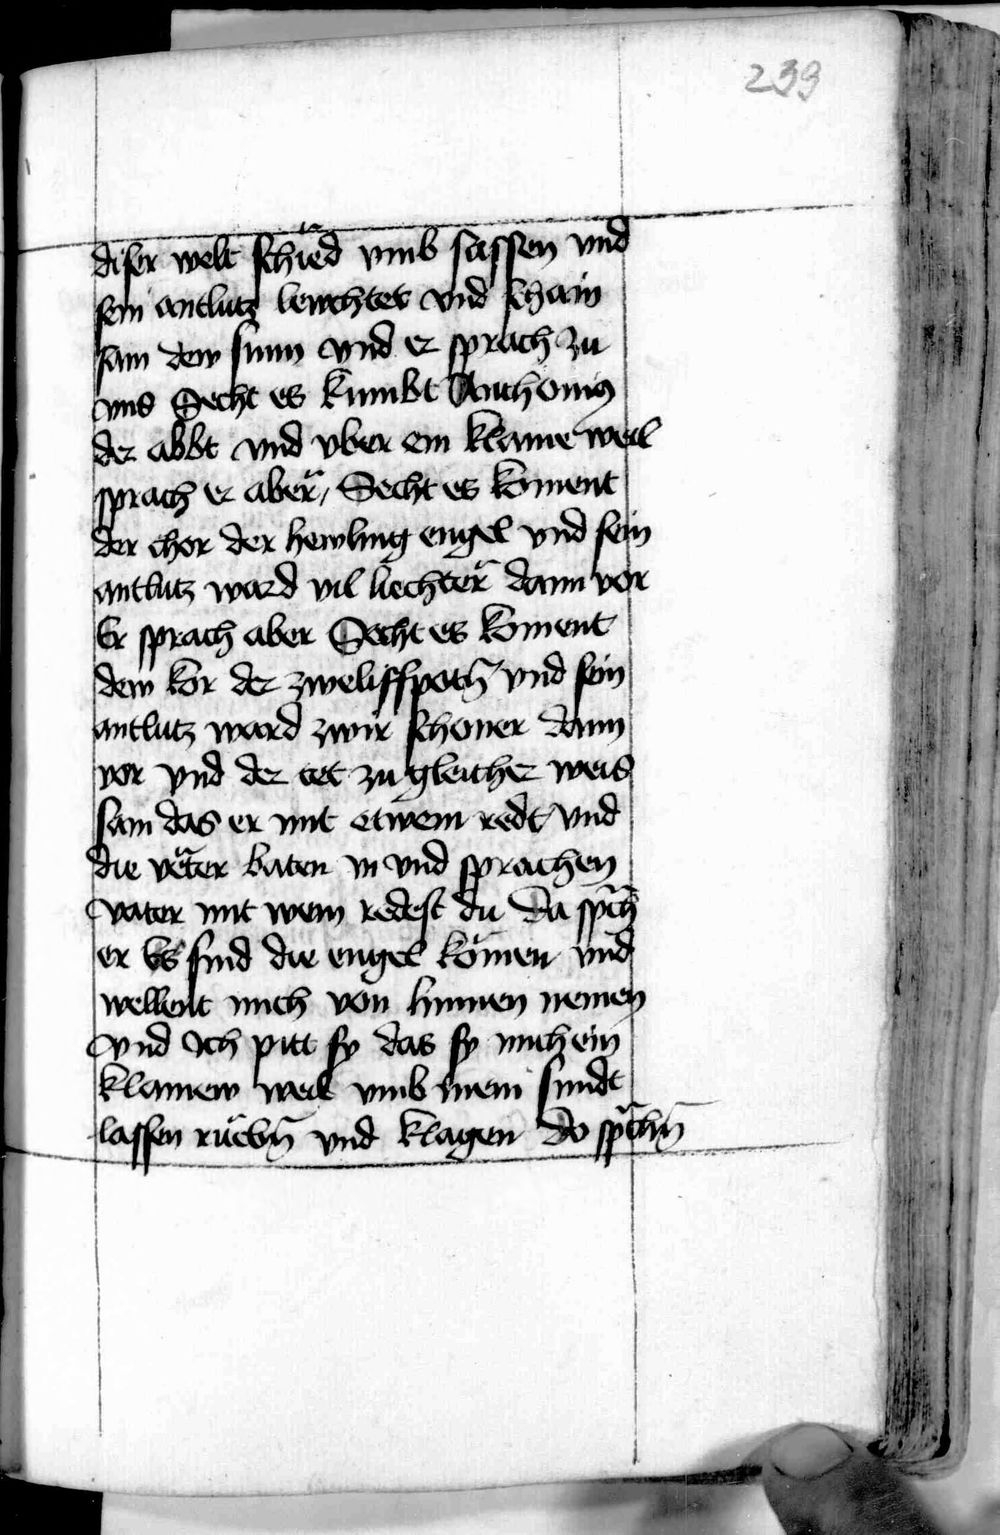 233
diser welt schied vmb sassen vnd
sein antlutz lewchtet vnd schain
sam dew sunn vnd er sprach zu
vns Secht es kumbt Anthonius
der abbt vnd vber ein klaine weil
sprach er aber / Secht es koment
der chor der hewling engel vnd sein
antlutz ward vil liechter dann vor
Er sprach aber Secht es koment
dew kor der zweliffpotn̄ vnd sein
antlutz ward zwir schoner dann
vor vnd der tet zu gleicher weis
sam das er mit etwem redt vnd
die väter baten in vnd sprachen
vater mit wem redest du Da sprch̄
er Es sind die engel kömen vnd
wellent mich von hinnen nemen
vnd Ich pitt sy das sy mich ein
klainew weil vmb mein sundt
lassen ruebn̄ vnd klagen Do sprchn̄